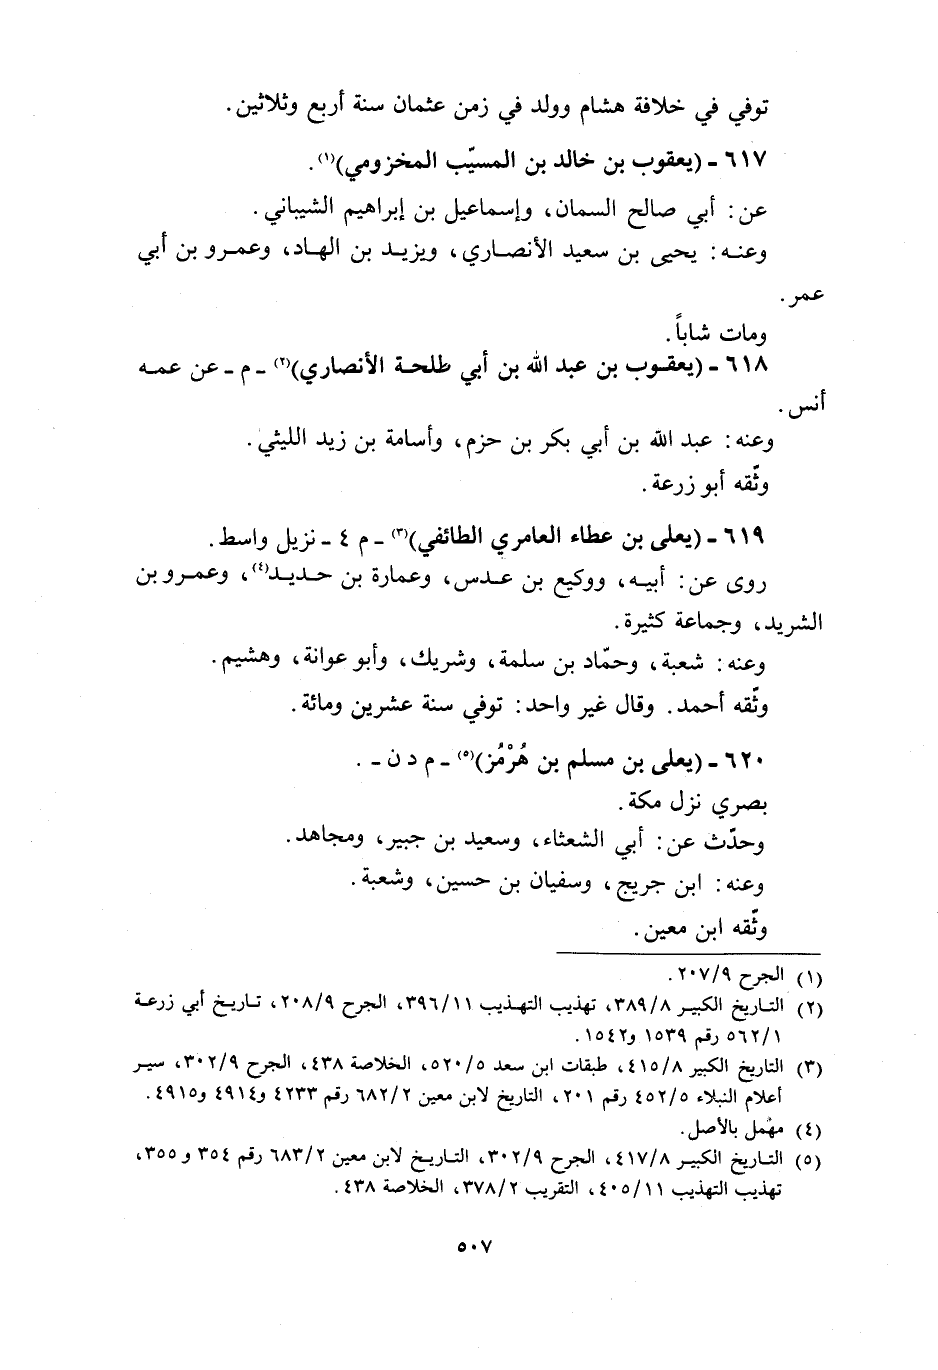 توفي في خلافة هشام وولد في زمن عثمان سنة أربع وثلاثين.
٦١٧ - (يعقوب بن خالد بن المسيّب المخزومي)(١).
عن: أبي صالح السمان، وإسماعيل بن إبراهيم الشيباني.
وعنـه: يحيى بن سعيد الأنصـاري، ويزيـد بن الهـاد، وعمـرو بن أبي
عمر.
ومات شاباً.
٦١٨ - (يعقـوب بن عبد الله بن أبي طلحـة الأنصاري)(٢) - م - عن عمـه
أنس.
وعنه: عبد الله بن أبي بكر بن حزم، وأسامة بن زيد الليثي.
وثّقه أبو زرعة.
٦١٩ - (يعلى بن عطاء العامري الطائفي)(٣) - م ٤ - نزيل واسط.
روى عن: أبيـه، ووكيع بن عـدس، وعمارة بن حـديـد(٤)، وعمـرو بن
الشريد، وجماعة كثيرة.
وعنه: شعبة، وحمّاد بن سلمة، وشريك، وأبو عوانة، وهشيم.
وثّقه أحمد. وقال غير واحد: توفي سنة عشرين ومائة.
٦٢٠ - (يعلى بن مسلم بن هُرْمُز)(٥) - م د ن - .
بصري نزل مكة.
وحدّث عن: أبي الشعثاء، وسعيد بن جبير، ومجاهد.
وعنه: ابن جريج، وسفيان بن حسين، وشعبة.
وثّقه ابن معين.
(١) الجرح ٢٠٧/٩.
(٢) التـاريخ الكبيـر ٣٨٩/٨، تهذيب التهـذيب ٣٩٦/١١، الجرح ٢٠٨/٩، تـاريـخ أبي زرعـة
٥٦٢/١ رقم ١٥٣٩ و١٥٤٢.
(٣) التاريخ الكبير ٤١٥/٨، طبقات ابن سعد ٥٢٠/٥، الخلاصة ٤٣٨، الجرح ٣٠٢/٩، سيـر
أعلام النبلاء ٤٥٢/٥ رقم ٢٠١، التاريخ لابن معين ٦٨٢/٢ رقم ٤٢٣٣ و٤٩١٤ و٤٩١٥.
(٤) مهْمل بالأصل.
(٥) التـاريخ الكبيـر ٤١٧/٨، الجرح ٣٠٢/٩، التـاريـخ لابن معين ٦٨٣/٢ رقم ٣٥٤ و ٣٥٥،
تهذيب التهذيب ٤٠٥/١١، التقريب ٣٧٨/٢، الخلاصة ٤٣٨.
٥٠٧